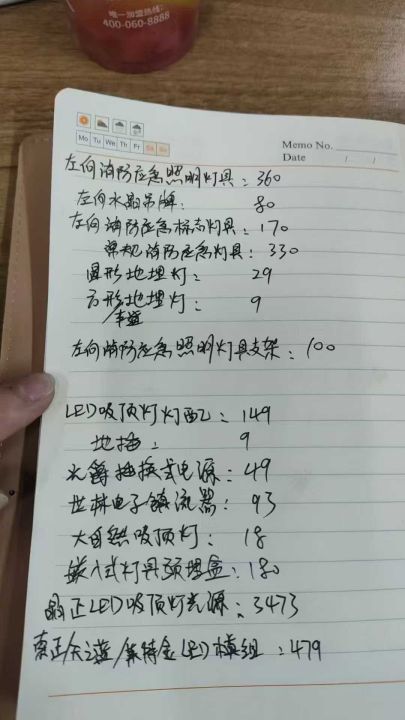 唯一加盟热线:
400-060-8888
Mo Tu We Th Fr Sa Su
Memo No.
Date / /
左向消防应急照明灯具: 360
左向水晶吊牌: 80
左向消防应急标志灯具: 170
常规消防应急灯具: 330
圆形地埋灯: 29
方形地埋灯: 9
左向消防应急照明灯具支架: 100
LED吸顶灯灯配: 149
地插: 9
插换式电源: 49
世林电子镇流器: 93
大自然吸顶灯: 18
嵌入式灯具预埋盒: 180
LED吸顶灯光源: 3473
LED模组: 479